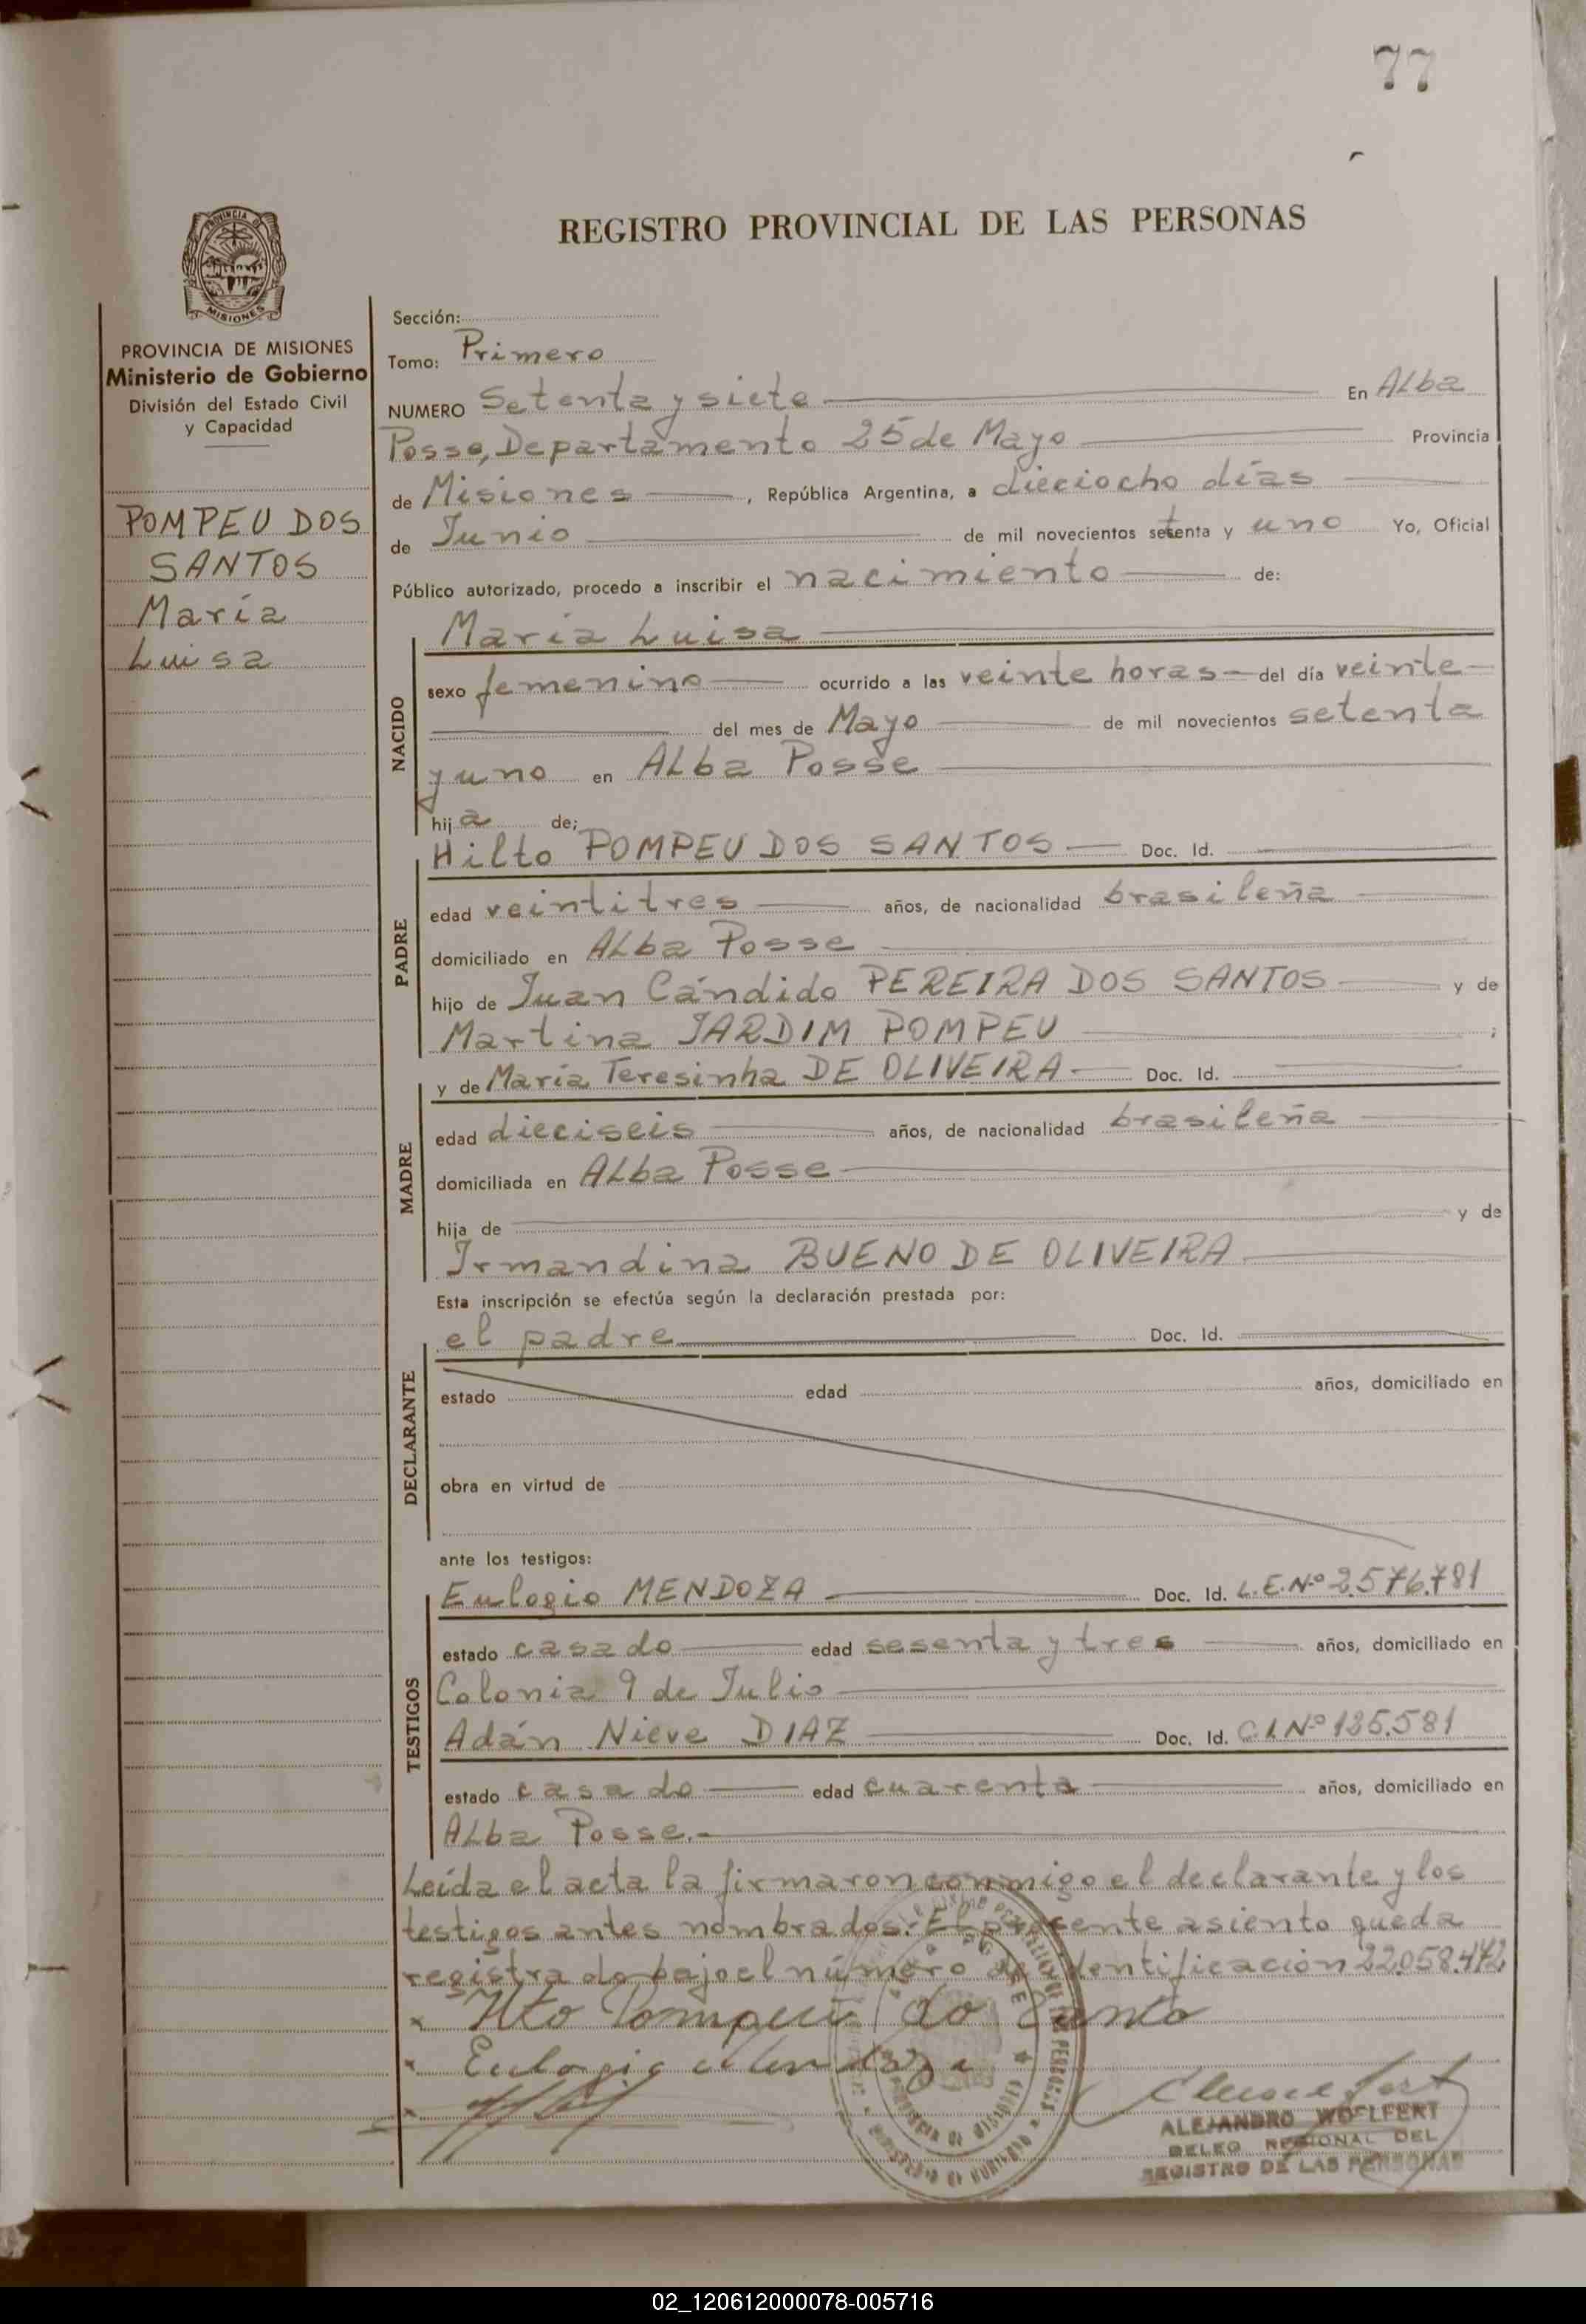 77
REGISTRO PROVINCIAL DE LAS PERSONAS
PROVINCIA DE MISIONES
Ministerio de Gobierno
División del Estado Civil
y Capacidad
POMPEU DOS
SANTOS
María
Luisa
Sección:
Tomo: Primero
NUMERO Setenta y siete En Alba
Posse, Departamento 25 de Mayo Provincia
de Misiones, República Argentina, a dieciocho días
de Junio de mil novecientos setenta y uno Yo, Oficial
Público autorizado, procedo a inscribir el nacimiento de:
NACIDO
María Luisa
sexo femenino ocurrido a las veinte horas del día veinte
del mes de Mayo de mil novecientos setenta
y uno en Alba Posse
hija de;
PADRE
Hilto POMPEU DOS SANTOS Doc. Id.
edad veintitres años, de nacionalidad brasileña
domiciliado en Alba Posse
hijo de Juan Cándido PEREIRA DOS SANTOS y de
Martina JARDIM POMPEU ;
MADRE
y de María Teresinha DE OLIVEIRA Doc. Id.
edad dieciseis años, de nacionalidad brasileña
domiciliada en Alba Posse
hija de y de
Irmandina BUENO DE OLIVEIRA
Esta inscripción se efectúa según la declaración prestada por:
DECLARANTE
el padre Doc. Id.
estado edad años, domiciliado en
obra en virtud de
ante los testigos:
TESTIGOS
Eulogio MENDOZA Doc. Id. L.E.Nº 2.576.781
estado casado edad sesenta y tres años, domiciliado en
Colonia 9 de Julio
Adán Nieve DIAZ Doc. Id. C.I.Nº 135.581
estado casado edad cuarenta años, domiciliado en
Alba Posse.-
Leída el acta la firmaron conmigo el declarante y los
testigos antes nombrados.- El presente asiento queda
registrado bajo el número de identificación 22.058.472
ALEJANDRO WOLFERT
DELEG. REGIONAL DEL
REGISTRO DE LAS PERSONAS
02_120612000078-005716